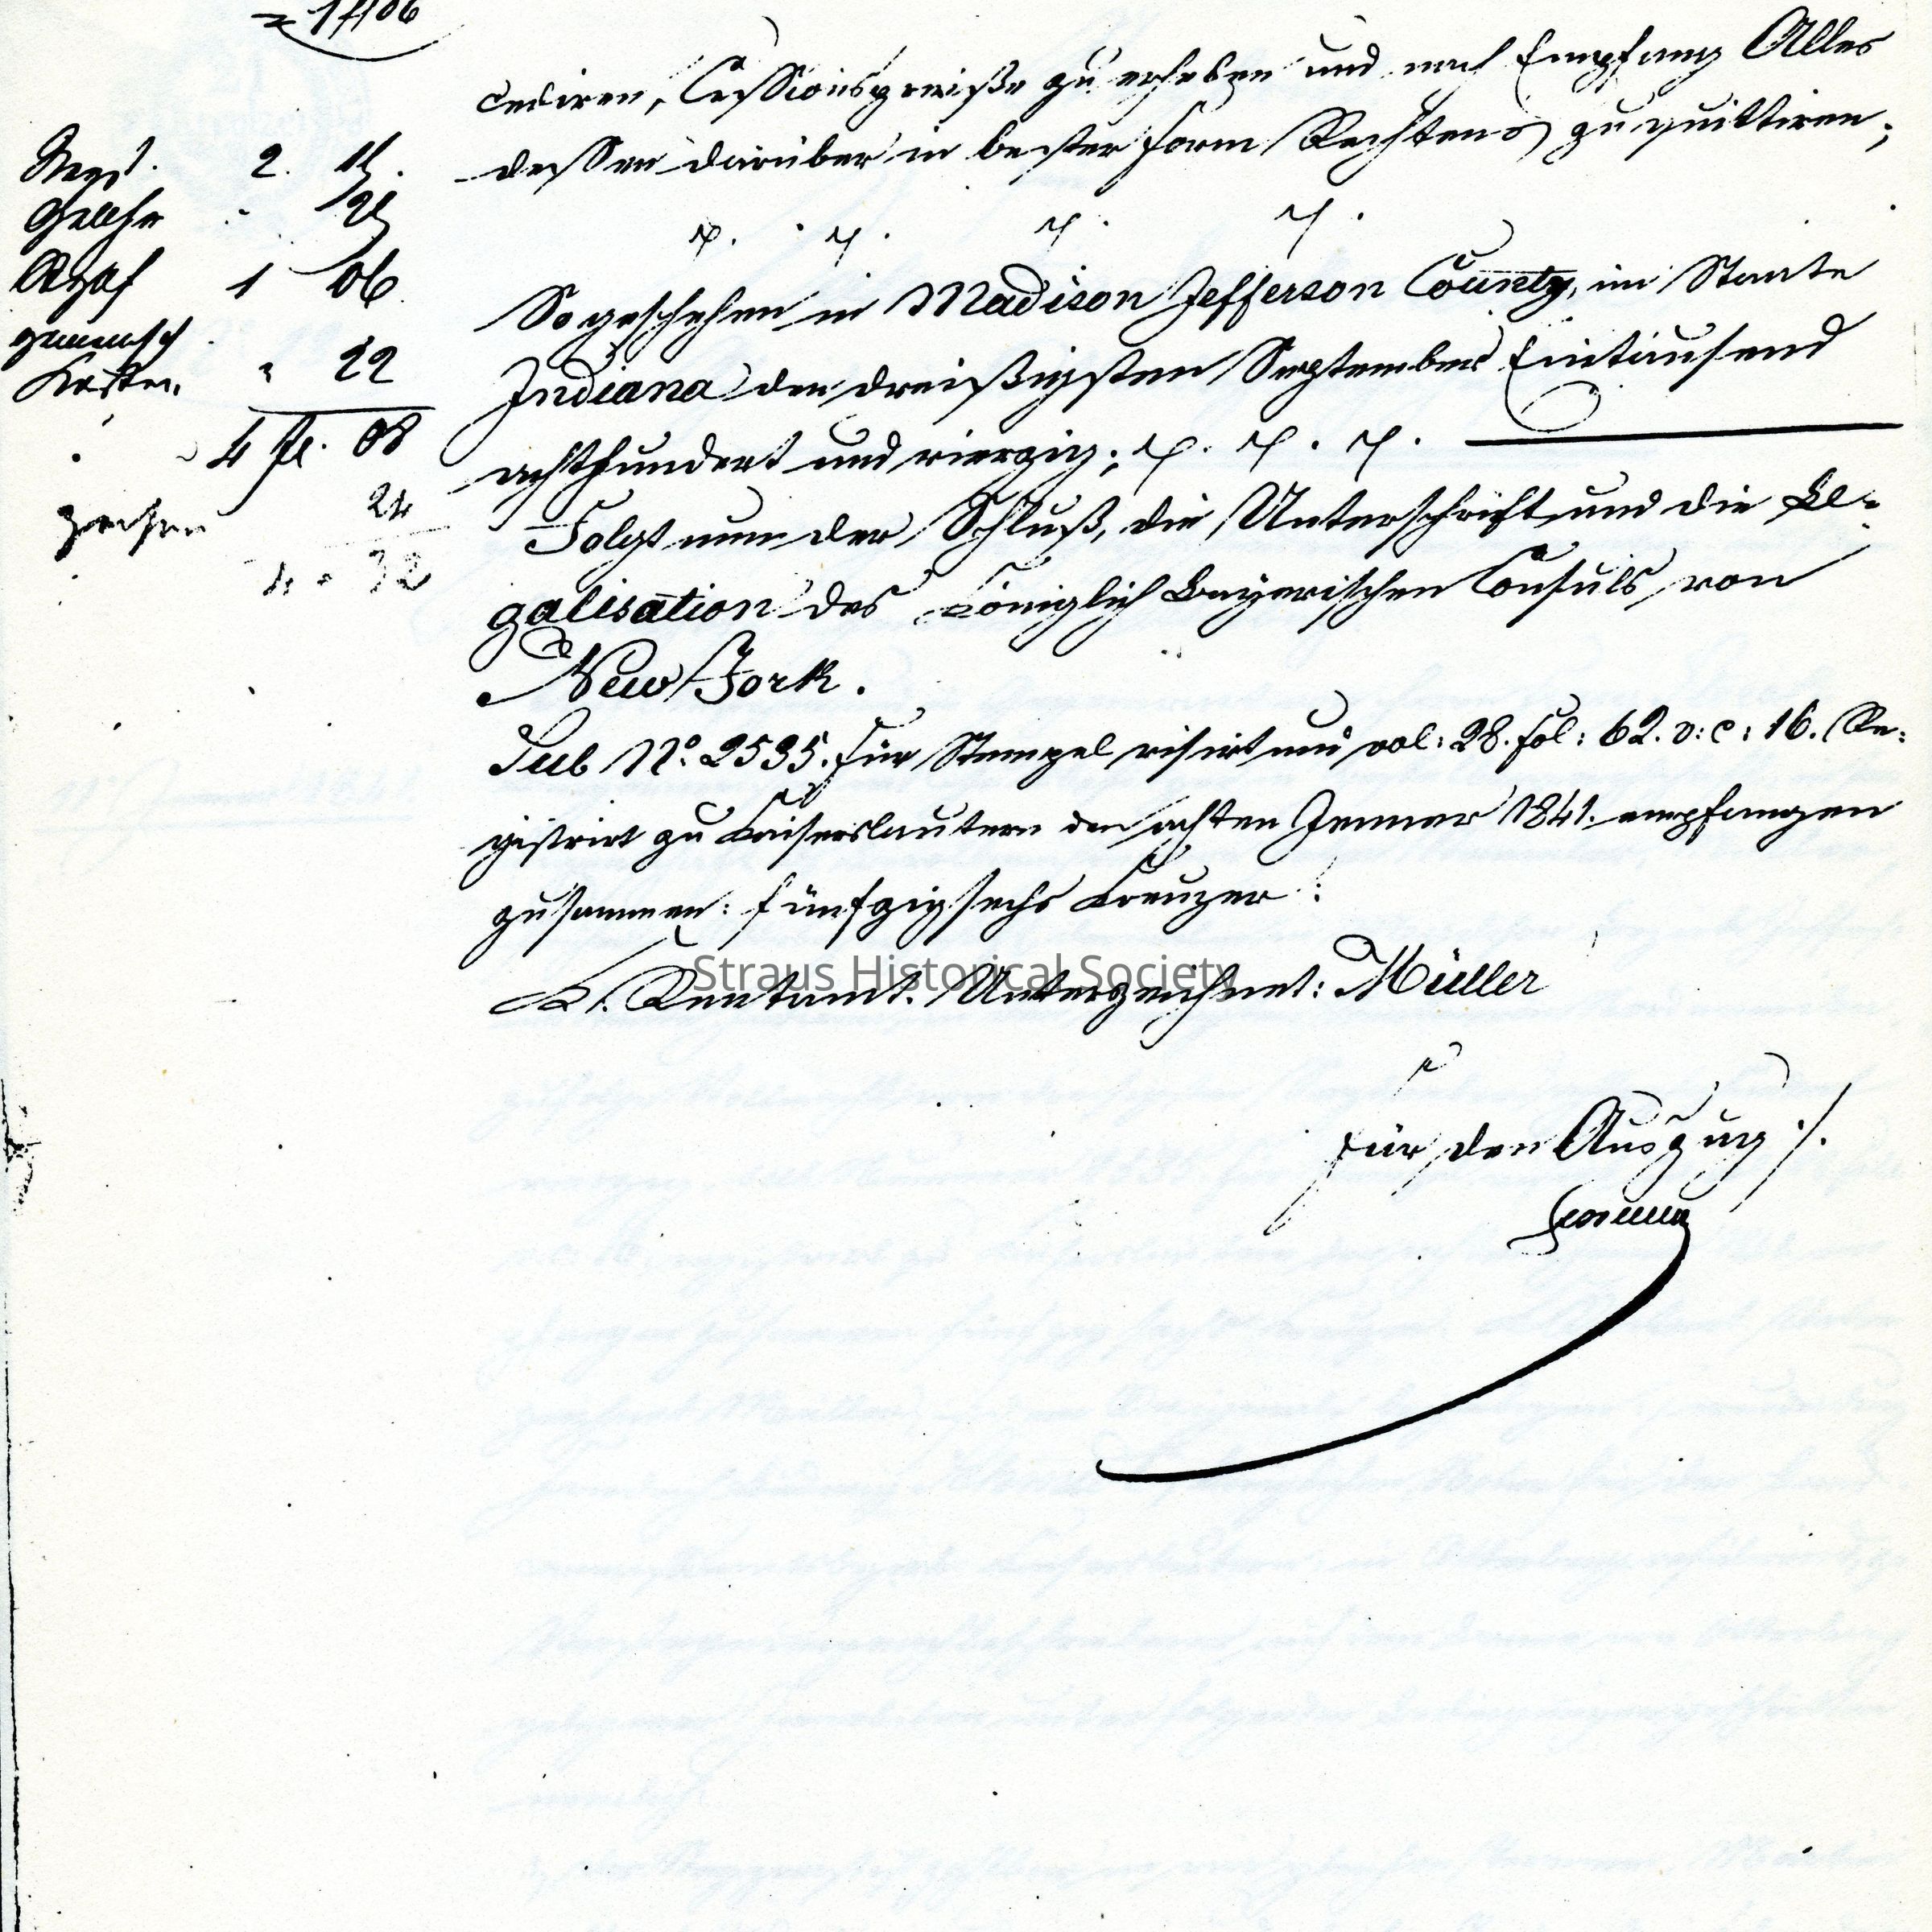 cediren, Cessionspreiße zu erheben und nach Empfang Alles
dessen darüber in bester Form Rechtens zu quittiren;
So geschehen in Madison Jefferson County, im Staate
Indiana den dreißigsten September Eintausend
achthundert und vierzig;
Folgt nun der Schluß, die Unterschrift und die Le-
galisation des Königlich Bayerischen Consuls von
New York.
Sub No. 2535. für Stempel visirt und vol: 28. fol: 62. v: c: 16. Re-
gistrirt zu Kaiserslautern den achten Jenner 1841. empfangen
zusammen: fünfzig sechs Kreuzer:
K. Rentamt. Unterzeichnet: Müller
Straus Historical Society
Für den Auszug ./.
2.
1 06
Kosten 22
4 fl. 08
24
4 " 32